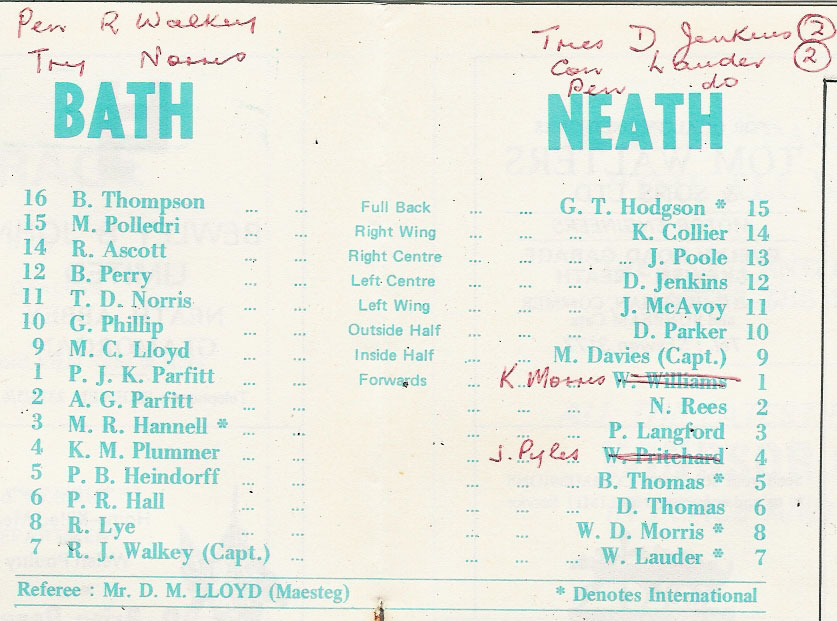 Pen R Walkey
Try Norris
Tries D Jenkins (2)
Con Lauder (2)
Pen do
BATH NEATH
16 B. Thompson ... ... Full Back ... ... G. T. Hodgson * 15
15 M. Polledri ... ... Right Wing ... ... K. Collier 14
14 R. Ascott ... ... Right Centre ... ... J. Poole 13
12 B. Perry ... ... Left Centre ... ... D. Jenkins 12
11 T. D. Norris ... ... Left Wing ... ... J. McAvoy 11
10 G. Phillip ... ... Outside Half ... ... D. Parker 10
9 M. C. Lloyd ... ... Inside Half ... ... M. Davies (Capt.) 9
1 P. J. K. Parfitt ... ... Forwards ... K. Morris W. Williams 1
2 A. G. Parfitt ... ... ... ... ... N. Rees 2
3 M. R. Hannell * ... ... ... ... P. Langford 3
4 K. M. Plummer ... ... J. Pyles ... W. Pritchard 4
5 P. B. Heindorff ... ... ... ... B. Thomas * 5
6 P. R. Hall ... ... ... ... D. Thomas 6
8 R. Lye ... ... ... ... W. D. Morris * 8
7 R. J. Walkey (Capt.) ... ... ... W. Lauder * 7
Referee : Mr. D. M. LLOYD (Maesteg) * Denotes International